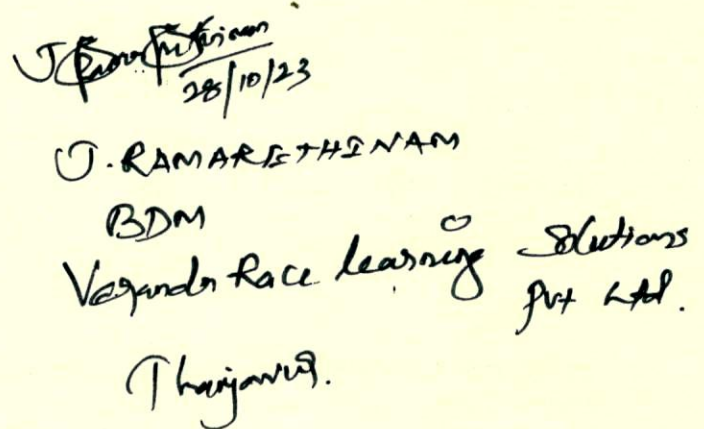 28/10/23
J. RAMARETHINAM
BDM
Veranda Race learning Solutions
Pvt Ltd.
Thanjavur.